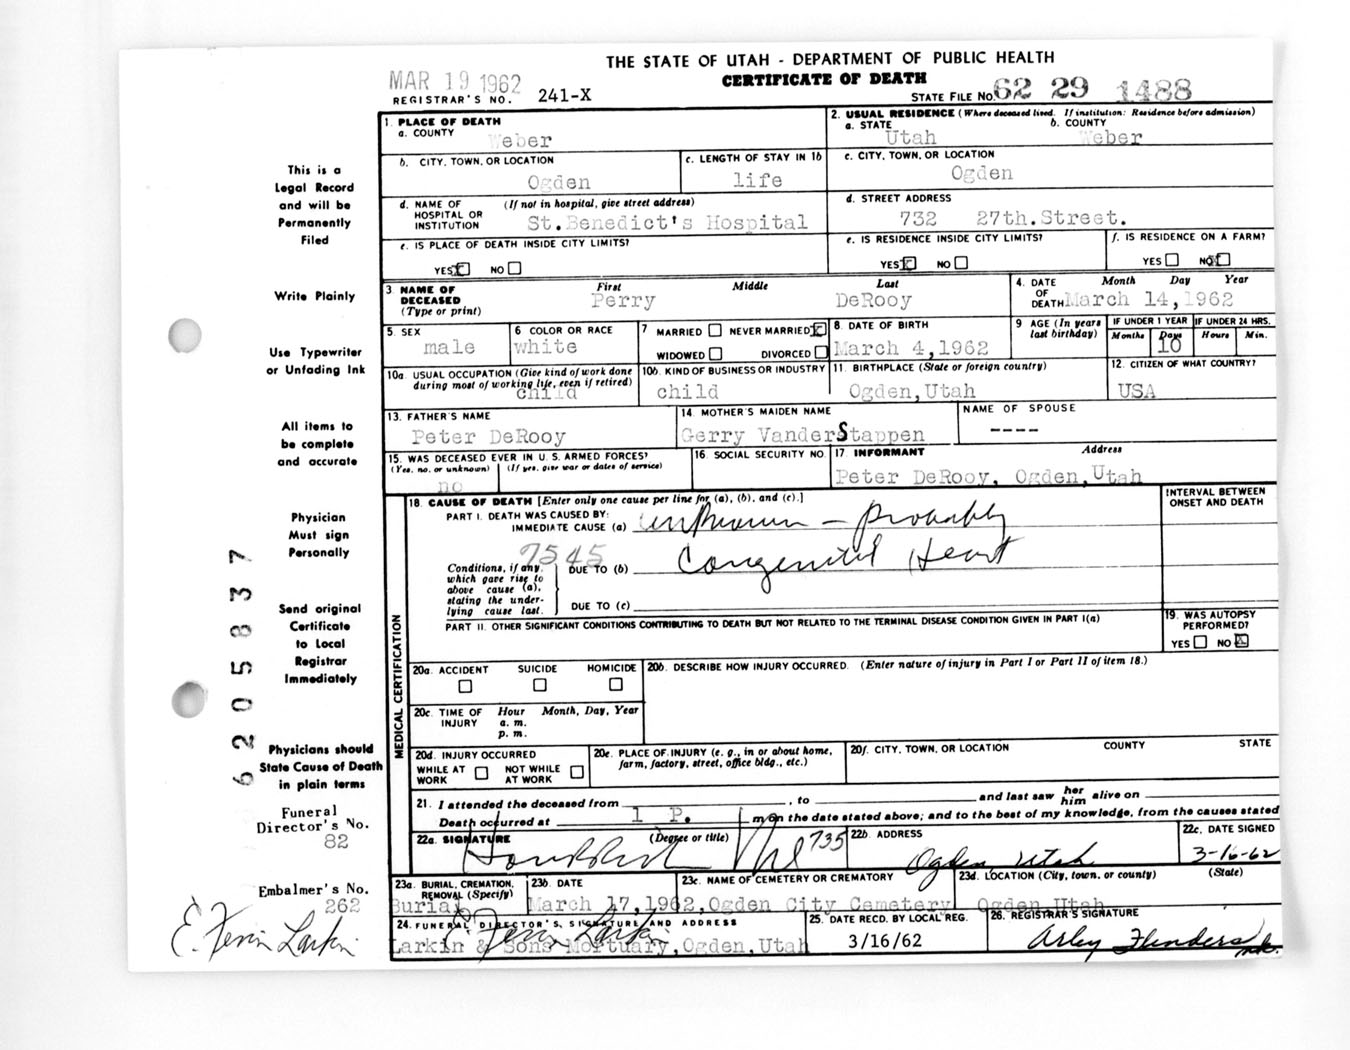 THE STATE OF UTAH - DEPARTMENT OF PUBLIC HEALTH
CERTIFICATE OF DEATH
MAR 19 1962
REGISTRAR'S NO. 241-X
STATE FILE NO. 62 29 1488
1. PLACE OF DEATH
a. COUNTY
Weber
2. USUAL RESIDENCE (Where deceased lived. If institution: Residence before admission)
a. STATE b. COUNTY
Utah Weber
b. CITY, TOWN, OR LOCATION
Ogden
c. LENGTH OF STAY IN 1b
life
c. CITY, TOWN, OR LOCATION
Ogden
d. NAME OF HOSPITAL OR INSTITUTION (If not in hospital, give street address)
St.Benedict's Hospital
d. STREET ADDRESS
732 27th.Street.
e. IS PLACE OF DEATH INSIDE CITY LIMITS?
YES NO
e. IS RESIDENCE INSIDE CITY LIMITS?
YES NO
f. IS RESIDENCE ON A FARM?
YES NO
3. NAME OF DECEASED (Type or print)
First Middle Last
Perry DeRooy
4. DATE OF DEATH
Month Day Year
March 14,1962
5. SEX
male
6 COLOR OR RACE
white
7 MARRIED NEVER MARRIED
WIDOWED DIVORCED
8. DATE OF BIRTH
March 4,1962
9 AGE (In years last birthday)
IF UNDER 1 YEAR IF UNDER 24 HRS.
Months Days Hours Min.
10
10a. USUAL OCCUPATION (Give kind of work done during most of working life, even if retired)
child
10b. KIND OF BUSINESS OR INDUSTRY
child
11. BIRTHPLACE (State or foreign country)
Ogden,Utah
12. CITIZEN OF WHAT COUNTRY?
USA
13. FATHER'S NAME
Peter DeRooy
14. MOTHER'S MAIDEN NAME
Gerry VanderStappen
NAME OF SPOUSE
----
15. WAS DECEASED EVER IN U.S. ARMED FORCES?
(Yes, no, or unknown) (If yes, give war or dates of service)
no
16. SOCIAL SECURITY NO.
17. INFORMANT Address
Peter DeRooy, Ogden,Utah
MEDICAL CERTIFICATION
18. CAUSE OF DEATH [Enter only one cause per line for (a), (b), and (c).]
INTERVAL BETWEEN ONSET AND DEATH
PART I. DEATH WAS CAUSED BY:
IMMEDIATE CAUSE (a) unknown - probably
7545
Conditions, if any, which gave rise to above cause (a), stating the underlying cause last.
DUE TO (b) Congenital Heart
DUE TO (c)
PART II. OTHER SIGNIFICANT CONDITIONS CONTRIBUTING TO DEATH BUT NOT RELATED TO THE TERMINAL DISEASE CONDITION GIVEN IN PART I(a)
19. WAS AUTOPSY PERFORMED?
YES NO
20a. ACCIDENT SUICIDE HOMICIDE
20b. DESCRIBE HOW INJURY OCCURRED. (Enter nature of injury in Part I or Part II of item 18.)
20c. TIME OF INJURY Hour Month, Day, Year
a. m.
p. m.
20d. INJURY OCCURRED
WHILE AT WORK NOT WHILE AT WORK
20e. PLACE OF INJURY (e. g., in or about home, farm, factory, street, office bldg., etc.)
20f. CITY, TOWN, OR LOCATION COUNTY STATE
21. I attended the deceased from , to and last saw her him alive on
Death occurred at 1 P. m on the date stated above; and to the best of my knowledge, from the causes stated
22a. SIGNATURE (Degree or title)
735
22b. ADDRESS
Ogden Utah
22c. DATE SIGNED
3-16-62
23a. BURIAL, CREMATION, REMOVAL (Specify)
Burial
23b. DATE
March 17,1962,
23c. NAME OF CEMETERY OR CREMATORY
Ogden City Cemetery
23d. LOCATION (City, town, or county) (State)
Ogden,Utah
24. FUNERAL DIRECTOR'S SIGNATURE AND ADDRESS
E. Ferrin Larkin
Larkin & Sons Mortuary,Ogden,Utah
25. DATE RECD. BY LOCAL REG.
3/16/62
26. REGISTRAR'S SIGNATURE
Arley Flinders
mk.
This is a
Legal Record
and will be
Permanently
Filed
Write Plainly
Use Typewriter
or Unfading Ink
All items to
be complete
and accurate
Physician
Must sign
Personally
Send original
Certificate
to Local
Registrar
Immediately
Physicians should
State Cause of Death
in plain terms
Funeral
Director's No.
82
Embalmer's No.
262
E. Ferrin Larkin
6205837